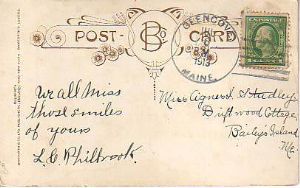 POST CARD
B Co
GLENCOVE
1913
MAINE
We all miss
those smiles
of yours
L. C. Philbrook
Miss Agnes Studley
Driftwood Cottage,
Bailey's Island
Me.